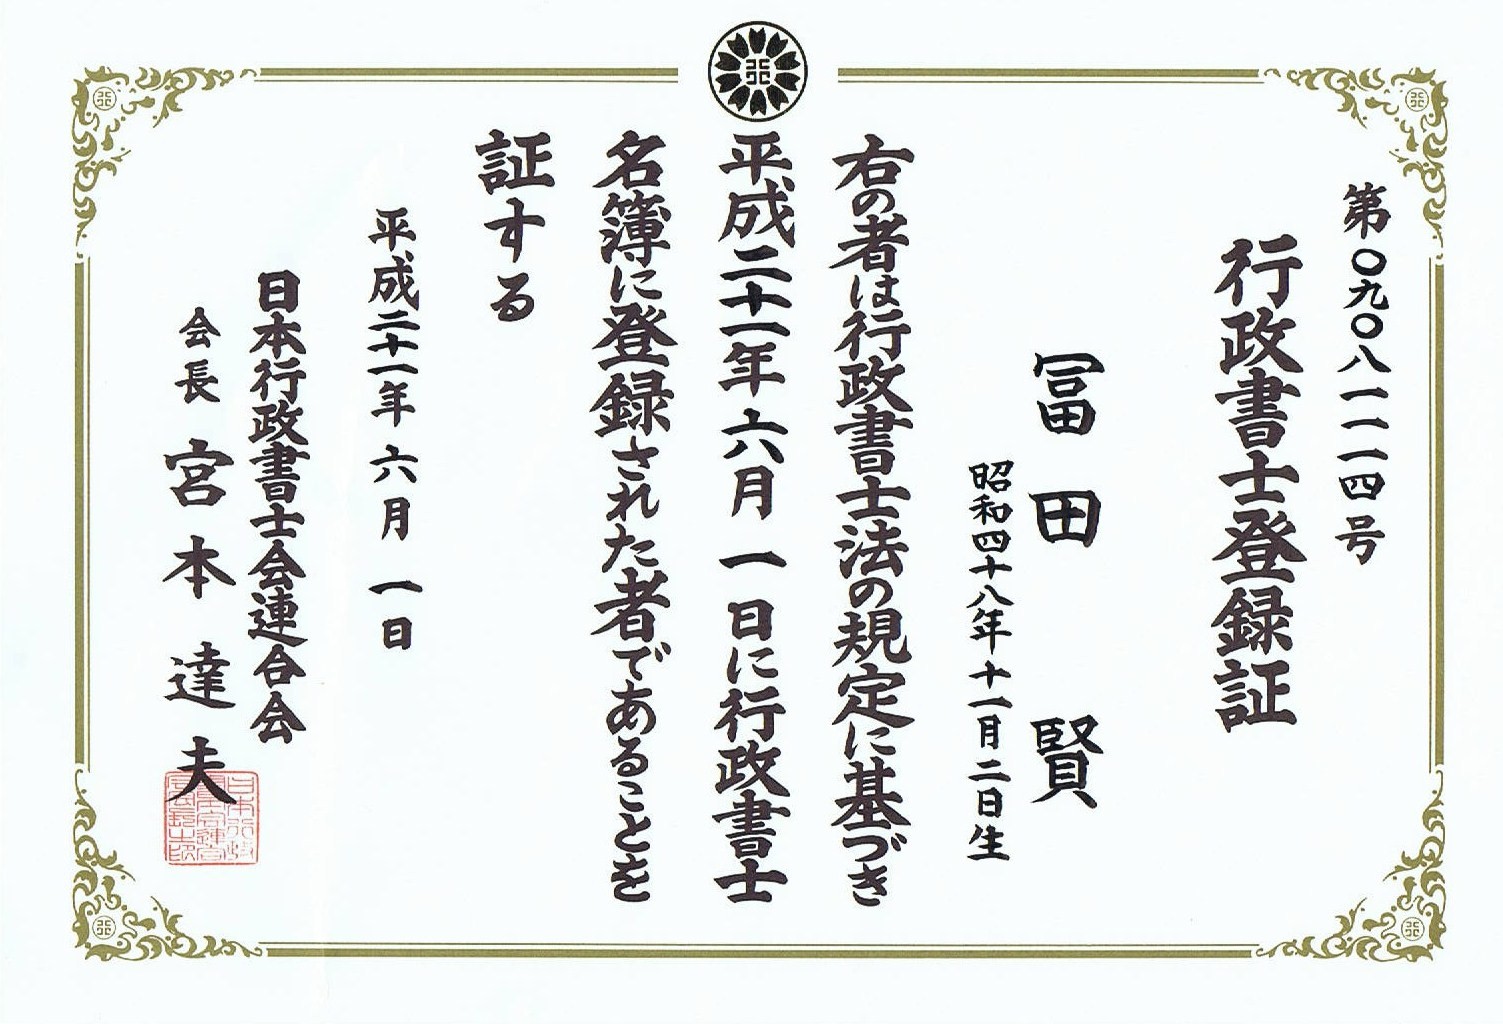 第〇九〇八一一一四号
行政書士登録証
冨田 賢
昭和四十八年十一月二日生
右の者は行政書士法の規定に基づき
平成二十一年六月一日に行政書士
名簿に登録された者であることを
証する
平成二十一年六月一日
日本行政書士会連合会
会長 宮本達夫